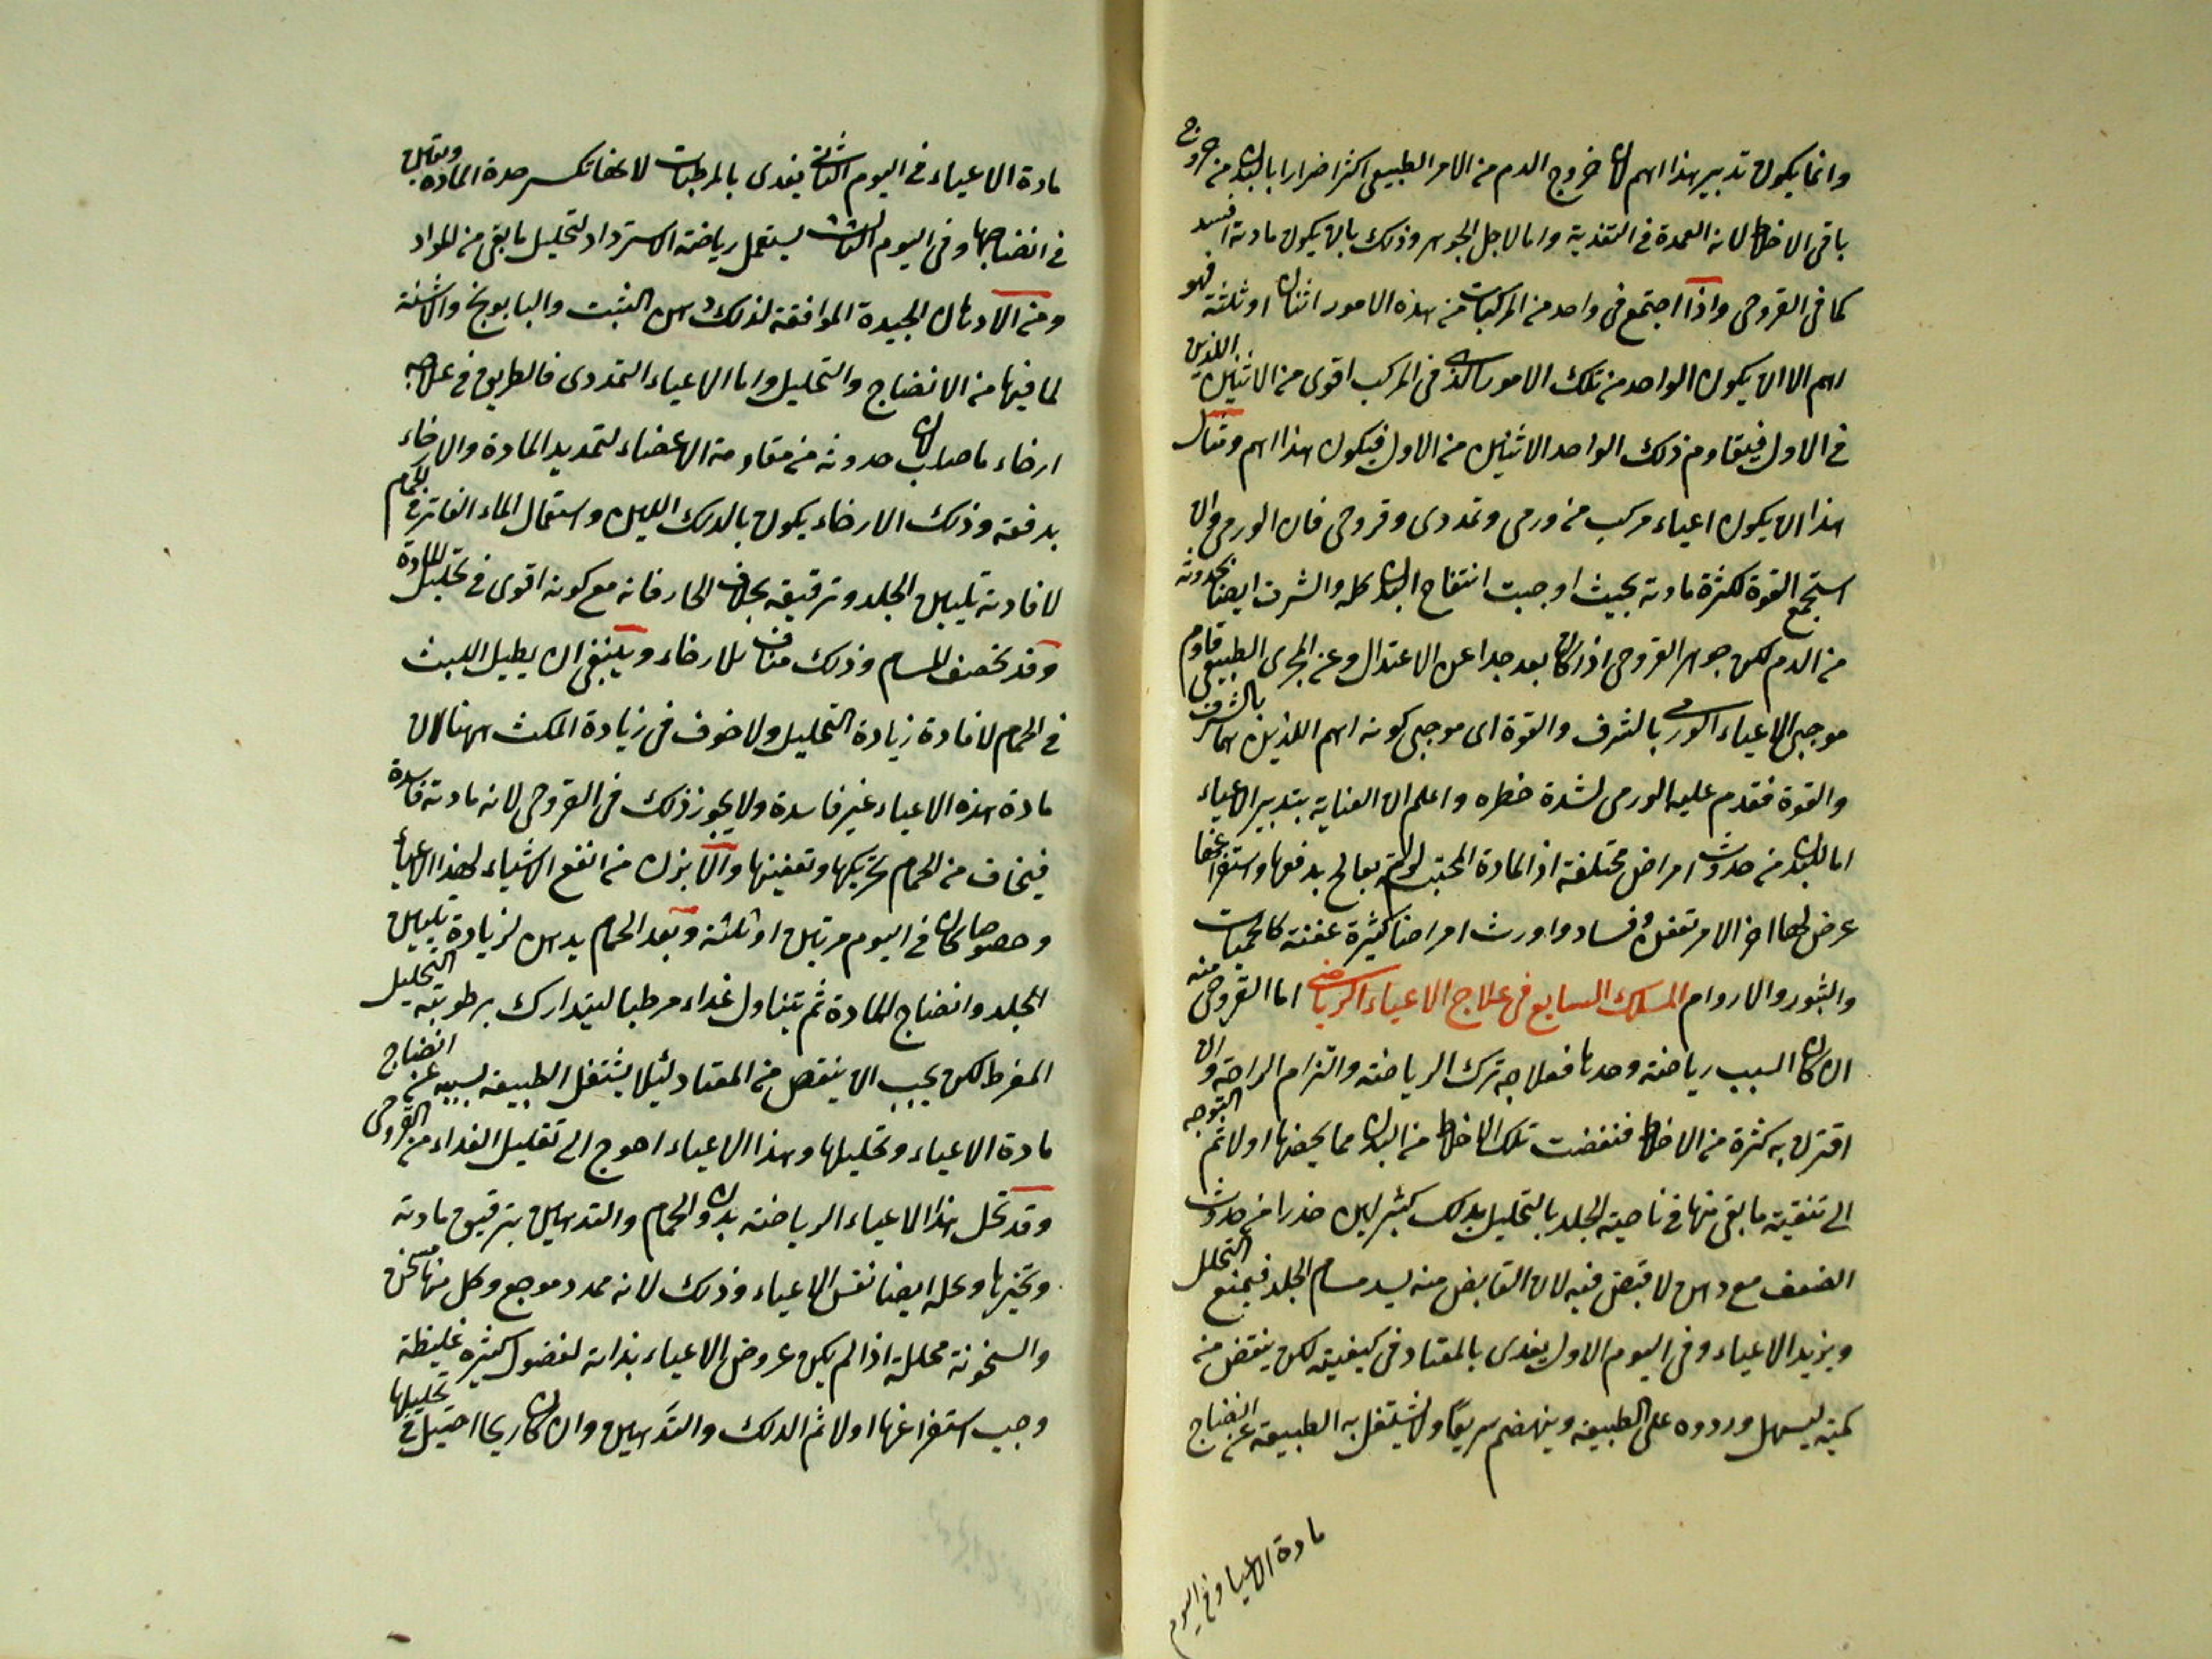 وانما يكون تدبير هذا اهم لان خروج الدم من الامر الطبيعى اكثر اضرارا بالبدن من خروج
باقى الاخلاط لانه العمدة فى التغذية واما لاجل الجوهر وذلك بان يكون مادته افسد
كما فى القروحى واذا اجتمع فى واحد من المركبات من هذه الامور اثنان او ثلثة فهو
اهم الا ان يكون الواحد من تلك الامور الذى فى المركب اقوى من الاثنين اللذين
فى الاول فيقاوم ذلك الواحد الاثنين من الاول فيكون هذا اهم ومثال
هذا ان يكون اعياء مركب من ورمى وتمددى وقروحى فان الورمى وان
استجمع القوة لكثرة مادته بحيث اوجبت انتفاخ البدن كله والشرف ايضا لحدوثه
من الدم لكن جوهر القروحى اذا كان بعد جدا عن الاعتدال وعن المجرى الطبيعى قاوم
موجبى الاعياء الورمى بالشرف والقوة اى موجبى كونه اهم اللذين هما الشرف
والقوة فقدم عليه الورمى لشدة خطره واعلم ان العناية بتدبير الاعياء
امان للبدن من حدوث امراض مختلفة اذ المادة المحتبسة لو لم يعالج بدفعها واستفراغها
عرض لها اخر الامر تعفن وفساد واورث امراضا كثيرة عفنة كالحميات
والبثور والاورام المسلك السابع فى علاج الاعياء الرياضى اما القروحى منه
ان كان السبب رياضة وحدها فعلاجه ترك الرياضة والتزام الراحة وان
اقترن به كثرة من الاخلاط فنفضت تلك الاخلاط من البدن مما يخصها اولا ثم التوجه
الى تنقية ما بقى منها فى ناحية الجلد بالتحليل بدلك كثير لين حذرا من حدوث
الضعف مع دهن لا قبض فيه لان القابض منه يسد مسام الجلد فيمنع التحلل
ويزيد الاعياء وفى اليوم الاول يغدى بالمعتاد فى كيفيته لكن ينقص من
كميته ليسهل وروده على الطبيعة وينهضم سريعا ولا يشتغل به الطبيعة عن انضاج
مادة الاعياء وفى اليوم
مادة الاعياء فى اليوم الثانى يغدى بالمرطبات لانها تكسر حدة المادة ويعاون
فى انضاجها وفى اليوم الثالث يستعمل رياضة الاسترداد لتحليل ما بقى من المواد
ومن الادهان الجيدة الموافقة لذلك دهن الشبت والبابونج والاشنة
لما فيها من الانضاج والتحليل واما الاعياء التمددى فالطريق فى علاجه
ارخاء ما صلب لان حدوثه من مقاومة الاعضاء لتمديد المادة والارخاء
يدفعه وذلك الارخاء يكون بالدلك اللين واستعمال الماء الفاتر فى الحمام
لافادته تليين الجلد وترقيقه بخلاف الحار فانه مع كونه اقوى فى تحليل المادة
وقد تخصف المسام وذلك مناف للارخاء وينبغى ان يطيل اللبث
فى الحمام لافادة زيادة التحليل ولا خوف فى زيادة المكث ههنا لان
مادة هذه الاعياء غير فاسدة ولا يجوز ذلك فى القروحى لانه مادته فاسدة
فيخاف من الحمام تحريكها وتعفينها والابزن من انفع الاشياء لهذا الاعياء
وخصوصا ان كان فى اليوم مرتين او ثلثة وبعد الحمام يدهن لزيادة تليين
الجلد وانضاج المادة ثم يتناول غداء مرطبا ليتدارك برطوبته التحليل
المفرط لكن يجب ان ينقص من المعتاد لئلا يشتغل الطبيعة بسببه عن انضاج
مادة الاعياء وتحليلها وهذا الاعياء احوج الى تقليل الغداء من القروحى
وقد تحل هذا الاعياء الرياضة بدون الحمام والتدهين بترقيق مادته
وتبخيرها ويحله ايضا نفس الاعياء وذلك لانه ممدد موجع وكل منها مسخن
والسخونة محللة اذا لم يكن عروض الاعياء بذاته لفضول كثيرة غليظة
وجب استفراغها اولا ثم الدلك والتدهين وان كان ريحا احتيل فى تحليلها